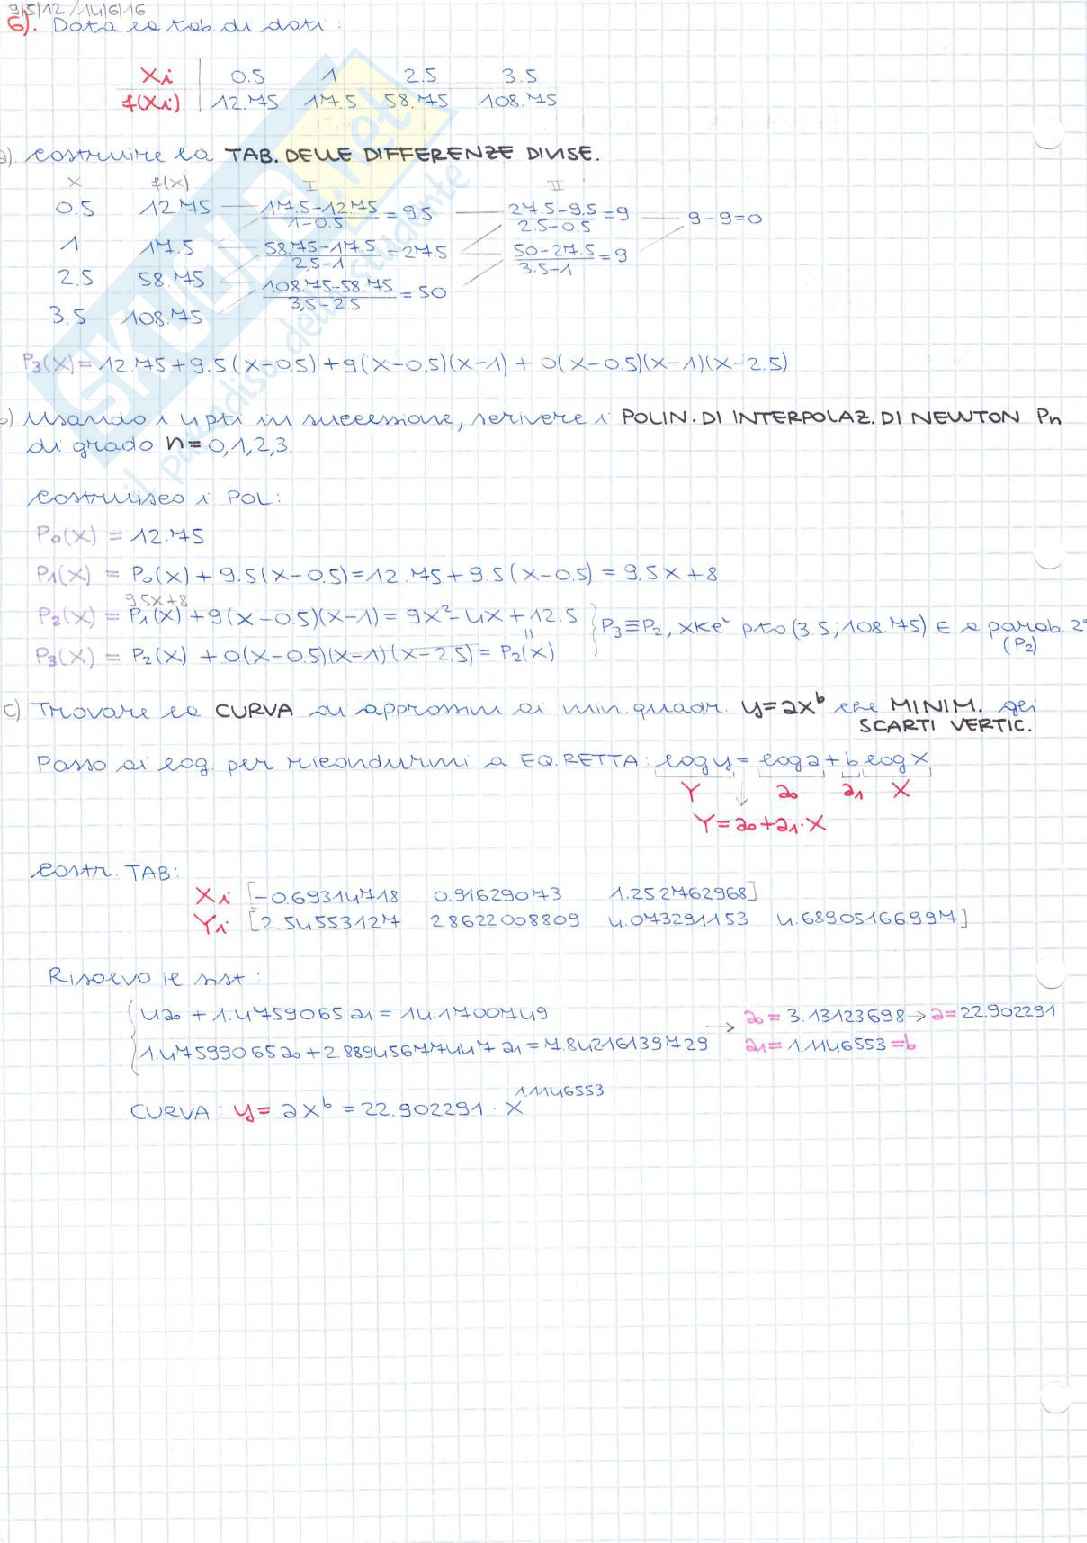 9/5/12 / 14/6/16
6). Data la tab di dati:
xi | 0.5 1 2.5 3.5
f(xi) | 12.75 17.5 58.75 108.75
a) costruire la TAB. DELLE DIFFERENZE DIVISE.
x f(x) I II
0.5 12.75 17.5-12.75/1-0.5 = 9.5 27.5-9.5/2.5-0.5 = 9 9-9=0
1 17.5 58.75-17.5/2.5-1 = 27.5 50-27.5/3.5-1 = 9
2.5 58.75 108.75-58.75/3.5-2.5 = 50
3.5 108.75
P3(x) = 12.75 + 9.5(x-0.5) + 9(x-0.5)(x-1) + 0(x-0.5)(x-1)(x-2.5)
b) Usando i 4 pti in successione, scrivere i POLIN. DI INTERPOLAZ. DI NEWTON Pn
di grado n = 0,1,2,3
costruisco i POL:
P0(x) = 12.75
P1(x) = P0(x) + 9.5(x-0.5) = 12.75 + 9.5(x-0.5) = 9.5x+8
9.5x+8
P2(x) = P1(x) + 9(x-0.5)(x-1) = 9x²-4x+12.5 } P3≡P2, xkè pto (3.5; 108.75) ∈ a parab. 2°
P3(x) = P2(x) + 0(x-0.5)(x-1)(x-2.5) = P2(x) (P2)
c) Trovare la CURVA di approssim di min. quadr. y=ax^b che MINIM. gli
SCARTI VERTIC.
Passo ai log. per ricondurmi a EQ. RETTA: log y = log a + b log x
Y a0 a1 X
Y = a0 + a1·X
costr. TAB:
Xi [-0.69314718 0.91629073 1.252762968]
Yi [2.545531274 2.8622008809 4.073291153 4.68905166997]
Risolvo il sist:
{ 4a0 + 1.4759065 a1 = 14.1700749 a0 = 3.13123698 → a = 22.902291
1.47599065 a0 + 2.88945677447 a1 = 7.84216139729 → a1 = 1.1146553 = b
CURVA: y = ax^b = 22.902291 · x^1.1146553
SKUOLA.net
il paradiso dello studente